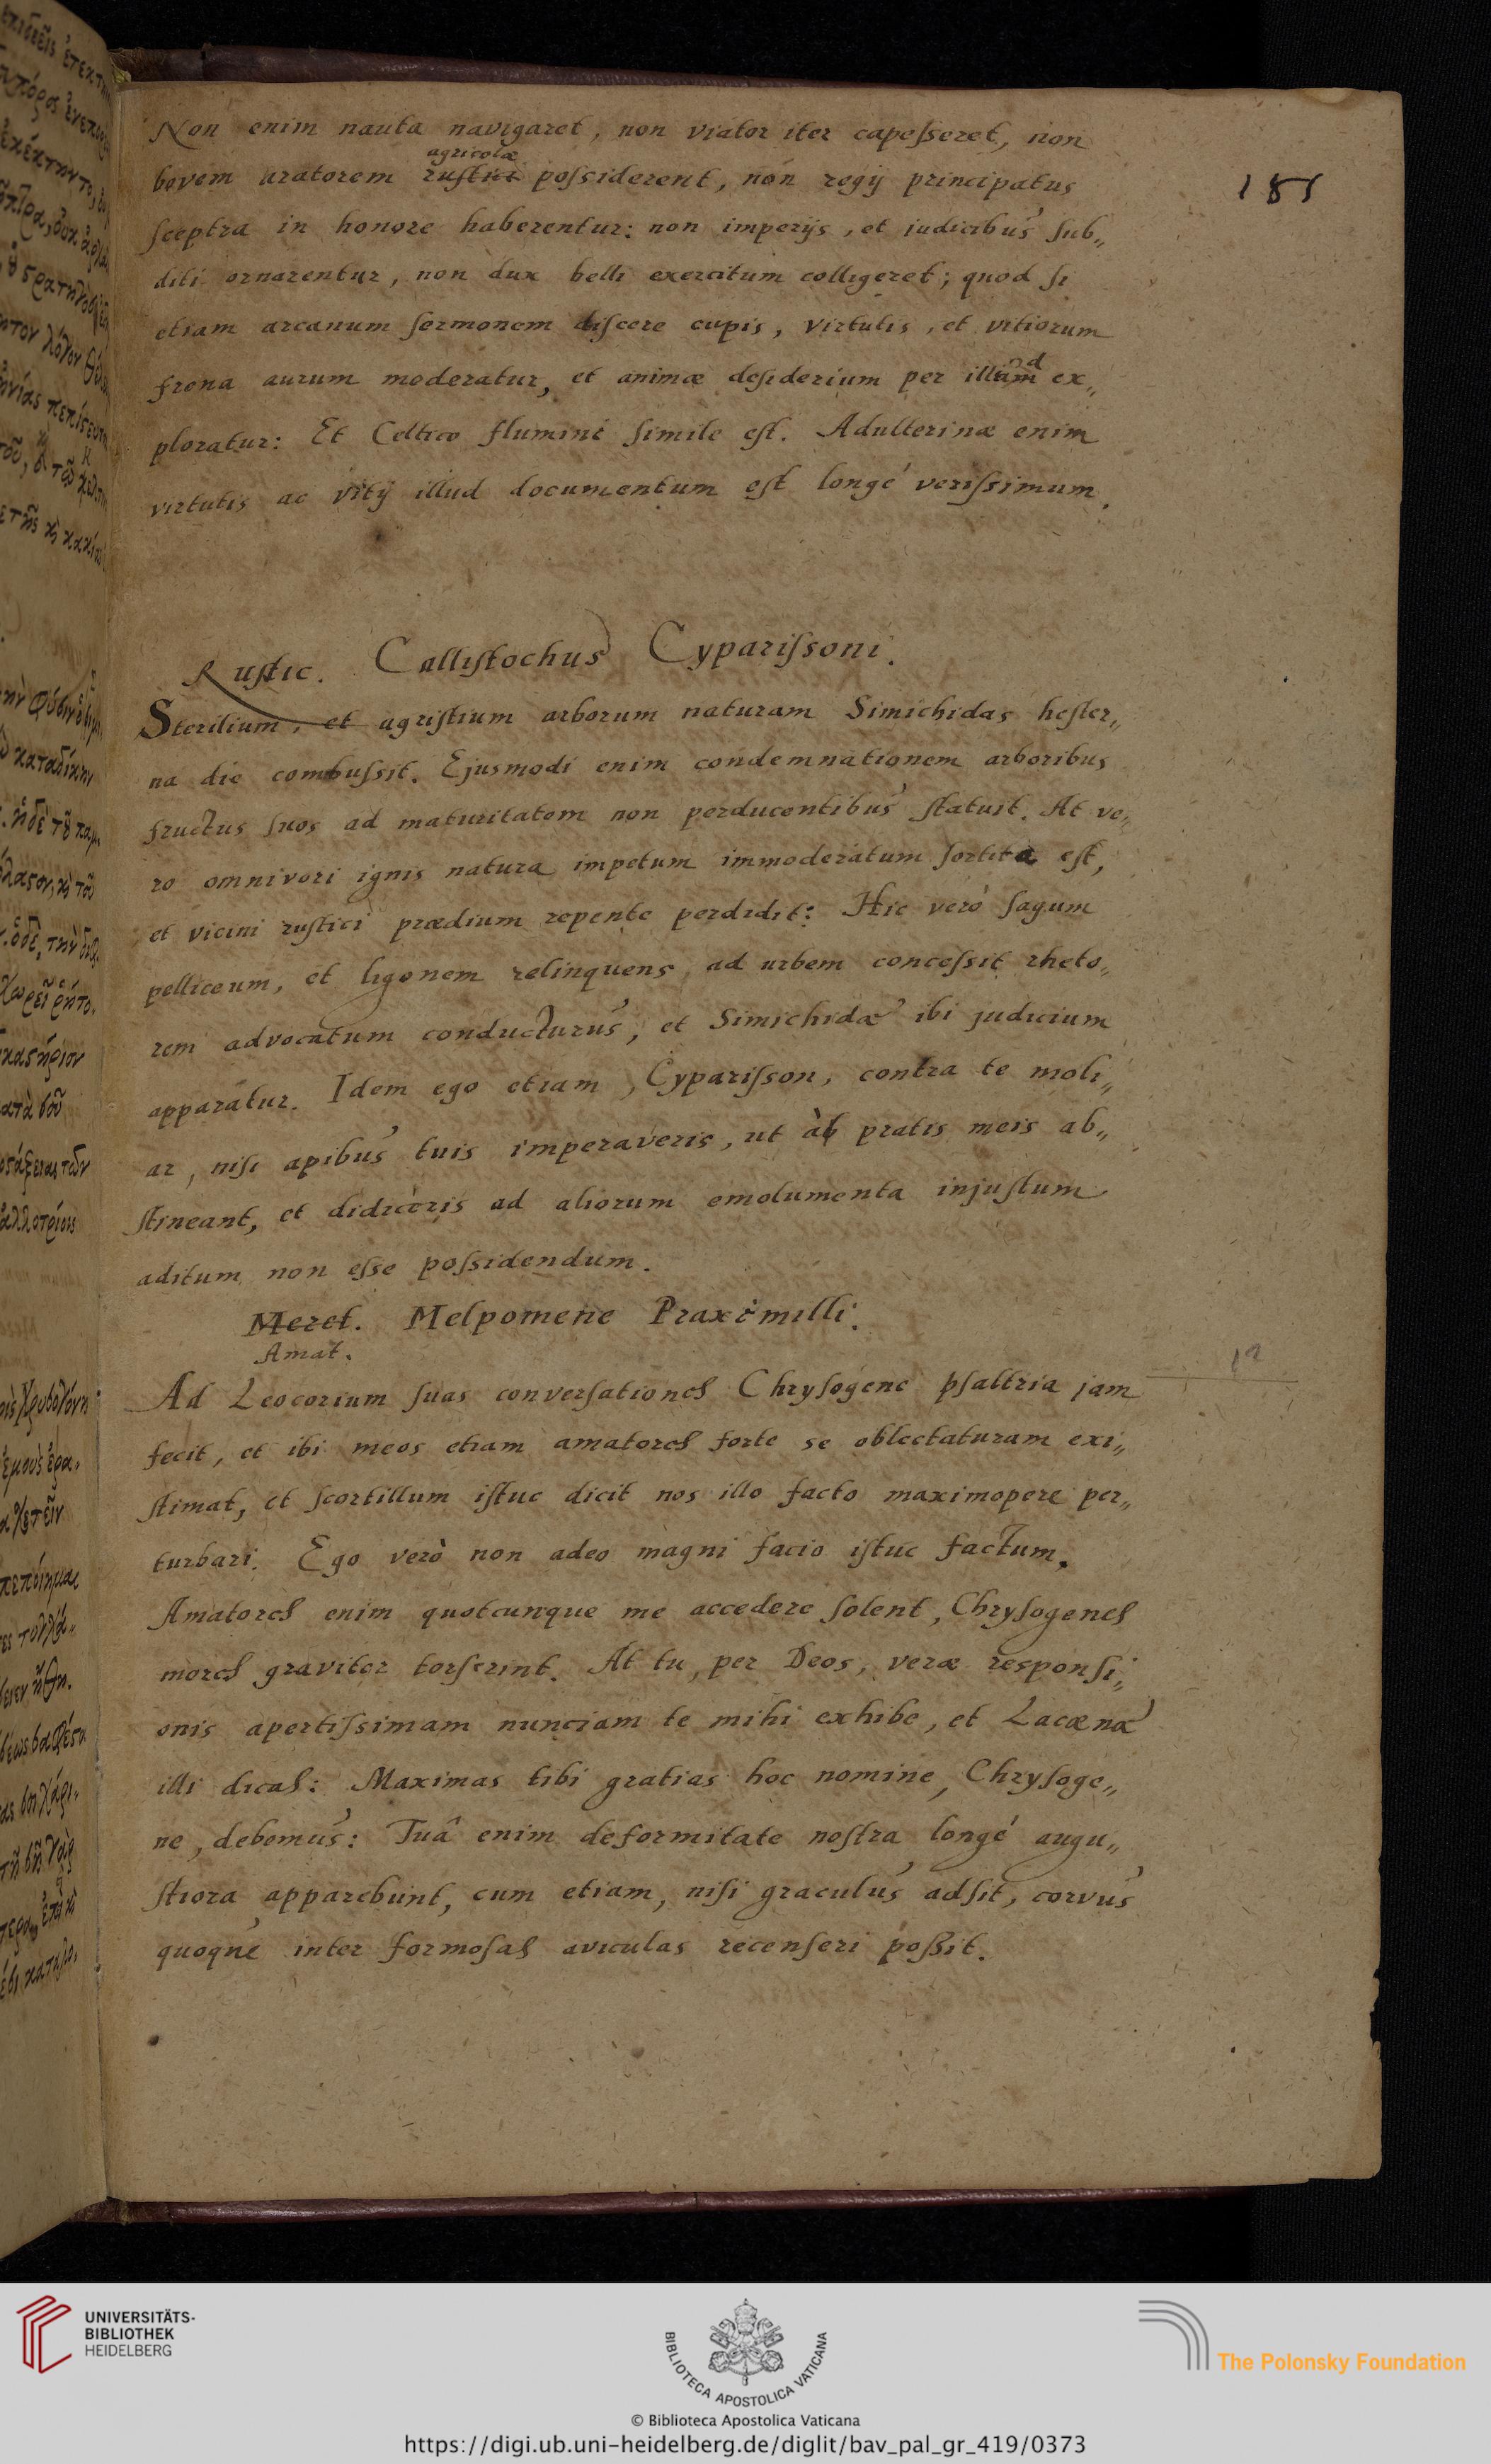 Non enim nauta navigaret, non viator iter capeſseret, non
agricolæ
bovem aratorem ruſtici poſsiderent, non regij principatus
181
ſceptra in honore haberentur: non imperijs, et iudicibus ſub„
diti ornarentur, non dux belli exercitum colligeret; quod ſi
etiam arcanum ſermonem diſcere cupis, virtutis, et vitiorum
frena aurum moderatur, et animæ deſiderium per illud ex„
ploratur: Et Celtico flumini ſimile eſt. Adulterinæ enim
virtutis ac vitij illud documentum eſt longé veriſsimum.
Ruſtic. Calliſtochus Cypariſsoni.
Sterilium, et agriſtium arborum naturam Simichidas heſter„
na die combuſsit. Ejusmodi enim condemnationem arboribus
fructus ſuos ad maturitatem non perducentibus ſtatuit. At ve„
ro omnivori ignis natura impetum immoderatum ſortita eſt,
et vicini ruſtici prædium repente perdidit: Hic verò ſagum
pelliceum, et ligonem relinquens, ad urbem conceſsit rheto„
rem advocatum conducturus, et Simichidæ ibi judicium
apparatur. Idem ego etiam, Cypariſson, contra te moli„
ar, niſi apibus tuis imperaveris, ut àb pratis meis ab„
ſtineant, et didiceris ad aliorum emolumenta injuſtum
aditum non eſse poſsidendum.
Meret. Melpomene Praximilli.
Amat.
Ad Leocorium ſuas converſationes Chryſogene pſaltria jam
fecit, et ibi meos etiam amatores forte se oblectaturam exi„
ſtimat, et ſcortillum iſtuc dicit nos illo facto maximopere per„
turbari. Ego verò non adeo magni facio iſtuc factum.
Amatores enim quotcunque me accedere ſolent, Chryſogenes
mores graviter torſerint. At tu, per Deos, veræ responſi„
onis apertiſsimam nunciam te mihi exhibe, et Lacæna
illi dicas: Maximas tibi gratias hoc nomine, Chryſoge„
ne, debemus: Tuâ enim deformitate noſtra longé augu„
ſtiora apparebunt, cum etiam, niſi graculus adſit, corvus
quoque inter formoſas aviculas recenſeri poßit.
UNIVERSITÄTS-
BIBLIOTHEK
HEIDELBERG
BIBLIOTECA APOSTOLICA VATICANA
The Polonsky Foundation
© Biblioteca Apostolica Vaticana
https://digi.ub.uni-heidelberg.de/diglit/bav_pal_gr_419/0373